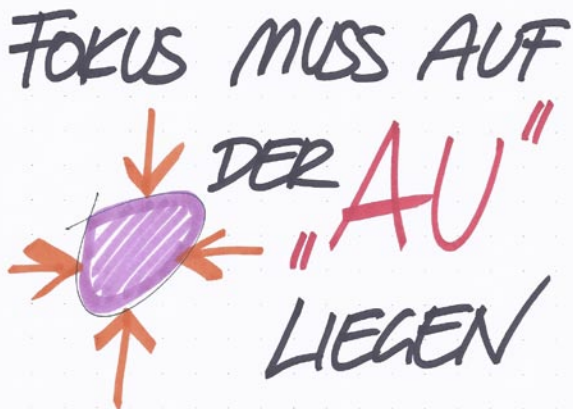 FOKUS MUSS AUF
DER „AU"
LIEGEN